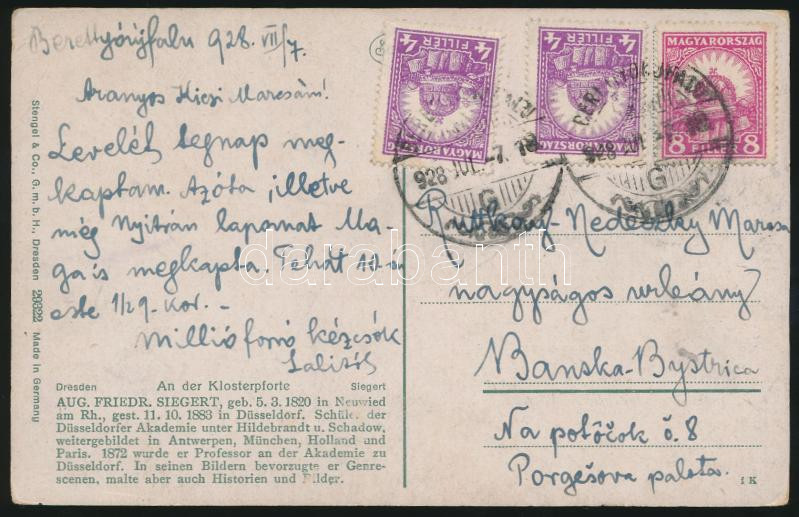 Berettyóújfalu 928. VII/7.
Aranyos Kicsi Marcsám!
Levelét tegnap meg-
kaptam. Azóta, illetve
még Nyitrán lapomat Ma-
ga is megkapta. Tehát 10-én
este 1/2 9-kor. -
Millió forró kézcsók
Lalitól
Stengel & Co., G. m. b. H., Dresden 29322 Made in Germany
Dresden An der Klosterpforte Siegert
AUG. FRIEDR. SIEGERT, geb. 5. 3. 1820 in Neuwied
am Rh., gest. 11. 10. 1883 in Düsseldorf. Schüler der
Düsseldorfer Akademie unter Hildebrandt u. Schadow,
weitergebildet in Antwerpen, München, Holland und
Paris. 1872 wurde er Professor an der Akademie zu
Düsseldorf. In seinen Bildern bevorzugte er Genre-
scenen, malte aber auch Historien und Bilder.
4 FILLÉR 4
MAGYARORSZÁG
4 FILLÉR 4
MAGYARORSZÁG
MAGYARORSZÁG
8 FILLÉR 8
928 JUL. 7. 18
G
928 JUL. 18
G
Ruttkay-Nedeczky Marcsa
nagyságos urleány
Banska-Bystrica
Na potôčok č. 8
Porgešova palota.
1 K
darabanth